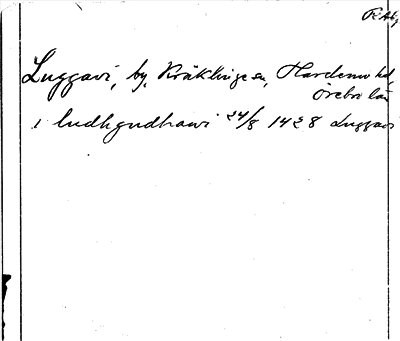 Luggavi, by, Kräklinge sn, Hardemo hd,
Örebro län
i ludhgudhawi 24/8 1428 Luggavi